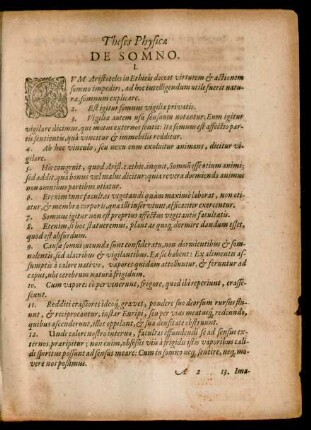 Theses Physicæ
DE SOMNO.
I.
CVM Aristoteles in Ethicis doceat virtutem & actionem
somno impediri, ad hoc intelligendum utile fuerit natu-
ræ somnum explicare.
2. Est igitur somnus vigiliæ privatio.
3. Vigilia autem usu sensuum notantur. Eum igitur
vigilare dicimus, qui motum externo sentit: ita somnus est affectio par-
tis sentientis, quâ vincitur & immobilis redditur.
4. Ab hoc vinculo, seu nexu cum exoluitur animans, dicitur vi-
gilare.
5. Hic congruit, quod Arist. 1. Ethic. inquit, Somnũ esse otium animi;
sed addit, quâ bonus vel malus dicitur, quia revera dormiendo animus
non omnibus partibus otiatur.
6. Etenim tunc facultas vegetandi quàm maximè laborat, non oti-
atur, & membra corporis, quasi illi inservirent, assiciuntur exercentur.
7. Somnus igitur non est proprius effectus vegetantis facultatis.
8. Etenim, si hoc statueremus, plantas quoq; dormire dandum esset,
quod est absurdum.
9. Causæ somni jucunda sunt consideratu, non dormientibus & som-
nolentis, sed alacribus & vigilantibus. Ea se habent: Ex alimentis as-
sumptis à calore nativo, vapores quidam attolluntur, & feruntur ad
caput, ubi cerebrum naturâ frigidum.
10. Cum vapores eò pervenerint, frigore, quod ibi reperiunt, crasse-
scunt.
11. Redditi crassiores ideoq; gravet, pondere suo deorsum rursus flu-
unt, & reciprocantur, instar Euripi, seu per vas meatuq; redeundo,
quibus ascenderunt, illos oppelant, & sua densitate obstruunt.
12. Unde calori nostro interno, facultas effundendi se ad sensus ex-
ternos præripitur; non enim, obsessis viis à frigidis istis vaporibus cali-
di spiritus possunt ad sensus meare: Cum in somno neq; sentire, neq; mo-
vere nos possimus.
A 2 13. Ima-